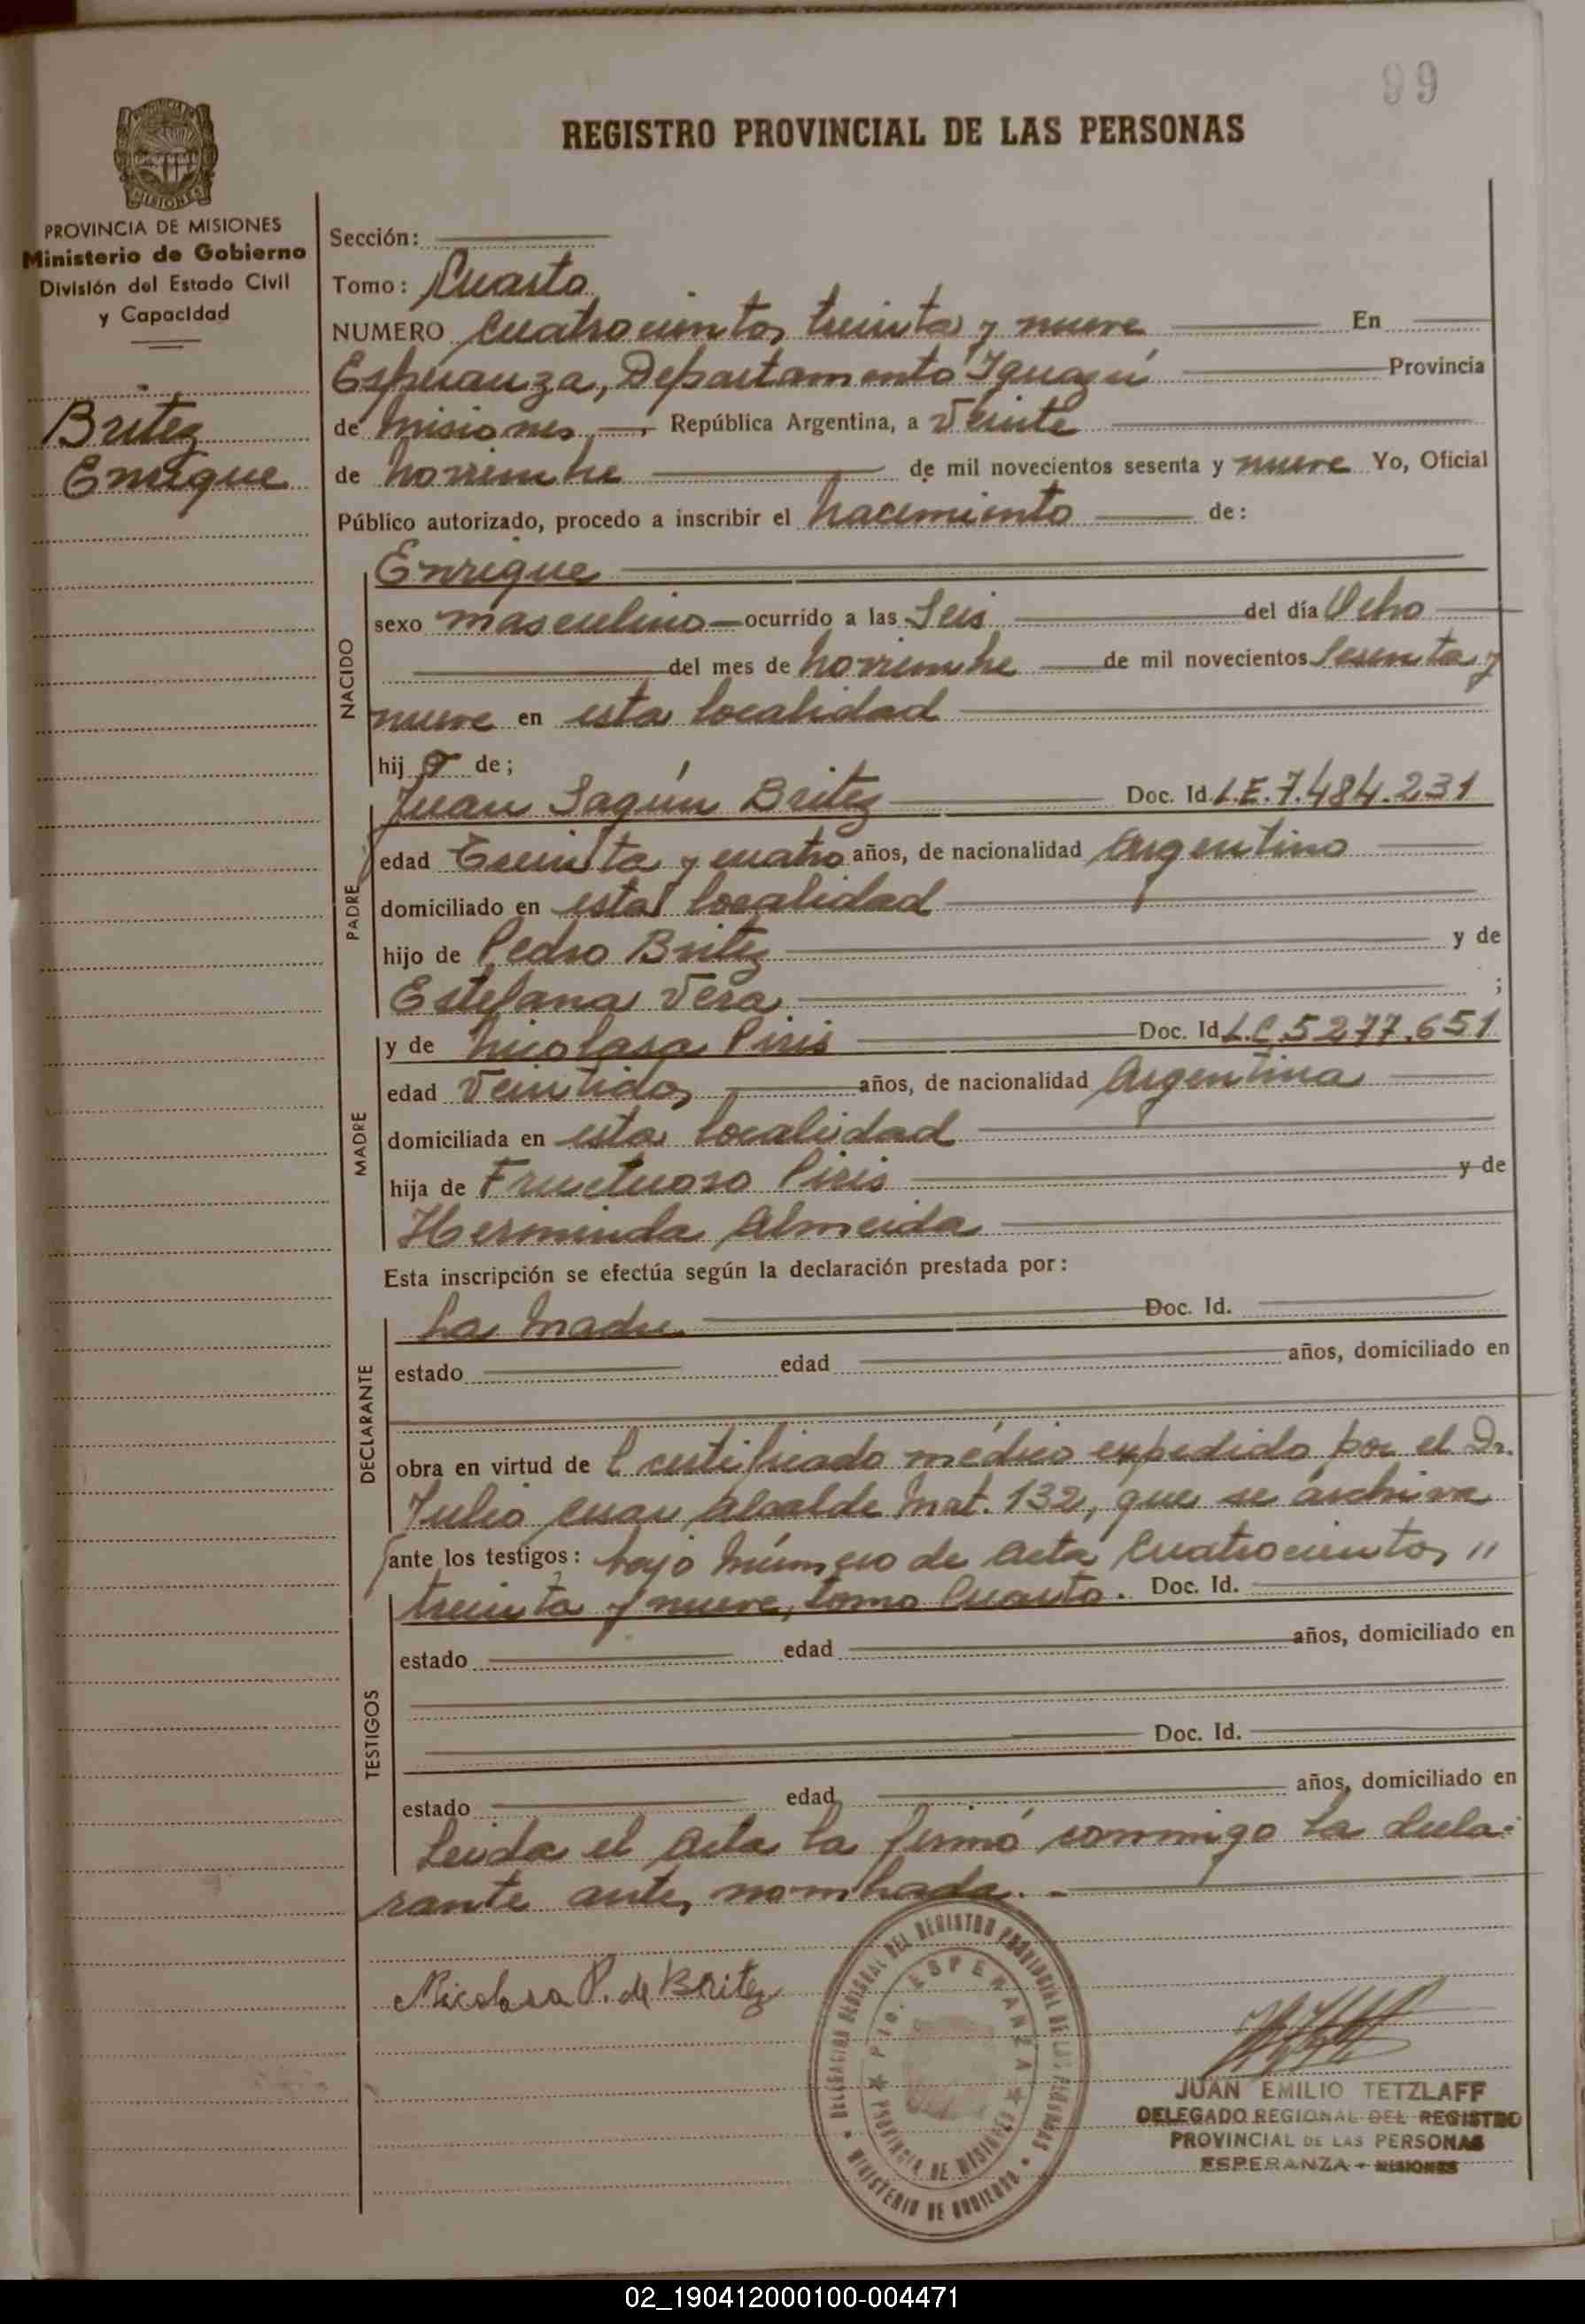 99
REGISTRO PROVINCIAL DE LAS PERSONAS
MISIONES
PROVINCIA DE MISIONES
Ministerio de Gobierno
División del Estado Civil
y Capacidad
Britez
Enrique
Sección:
Tomo: Cuarto
NUMERO cuatrocientos treinta y nueve En
Esperanza, Departamento Iguazú Provincia
de Misiones República Argentina, a Veinte
de noviembre de mil novecientos sesenta y nueve Yo, Oficial
Público autorizado, procedo a inscribir el nacimiento de:
NACIDO
Enrique
sexo masculino ocurrido a las Seis del día Ocho
del mes de noviembre de mil novecientos sesenta y
nueve en esta localidad
hij o de;
PADRE
Juan Sagún Britez Doc. Id. L.E. 7.484.231
edad Treinta y cuatro años, de nacionalidad Argentino
domiciliado en esta localidad
hijo de Pedro Britez y de
Estefana Vera ;
MADRE
y de Nicolasa Piris Doc. Id. L.C. 5277.651
edad Veintidos años, de nacionalidad Argentina
domiciliada en esta localidad
hija de Fructuoso Piris y de
Herminda Almeida
Esta inscripción se efectúa según la declaración prestada por:
DECLARANTE
La Madre Doc. Id.
estado edad años, domiciliado en
obra en virtud de l certificado médico expedido por el Dr.
Julio cesar Alcalde Mat. 132, que se archiva
ante los testigos: bajo Número de Acta Cuatrocientos "
treinta y nueve, tomo Cuarto. Doc. Id.
TESTIGOS
estado edad años, domiciliado en
Doc. Id.
estado edad años, domiciliado en
Leida el Acta la firmó conmigo la decla-
rante antes nombrada. -
Nicolasa P. de Britez
DELEGACION REGIONAL DEL REGISTRO PROVINCIAL DE LAS PERSONAS
MINISTERIO DE GOBIERNO
Pto. ESPERANZA
PROVINCIA DE MISIONES
JUAN EMILIO TETZLAFF
DELEGADO REGIONAL DEL REGISTRO
PROVINCIAL DE LAS PERSONAS
ESPERANZA - MISIONES
02_190412000100-004471